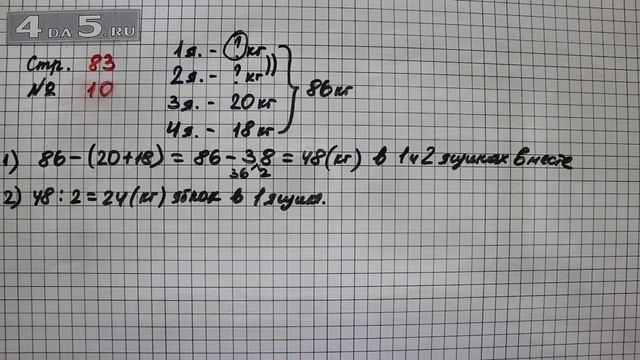 4 DA 5.RU
Стр. 83
№ 10
1я. - ? кг
2я. - ? кг
3я. - 20 кг
4я. - 18 кг
86 кг
1) 86 - (20+18) = 86 - 38 = 48 (кг) в 1 и 2 ящиках вместе
36 2
2) 48 : 2 = 24 (кг) яблок в 1 ящике.